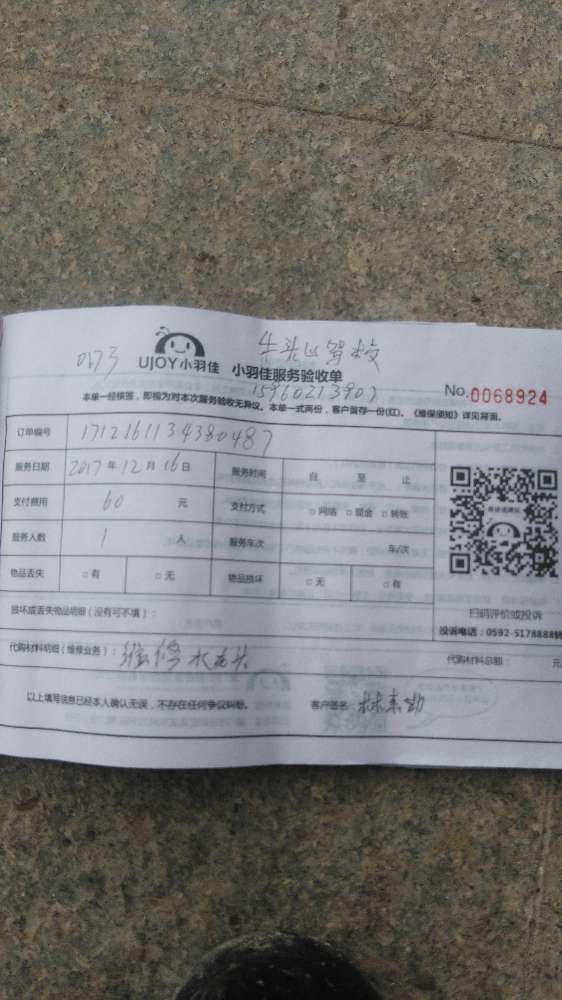 0173
牛头山驾校
UJOY小羽佳 小羽佳服务验收单
15960213907
No.0068924
本单一经核签，即视为对本次服务验收无异议。本单一式两份，客户留存一份(红)。《维保须知》详见背面。
订单编号 171216113438048７
服务日期 2017年12月16日 服务时间 自 至 止
支付费用 60 元 支付方式 □网络 □现金 □转账
服务人数 1 人 服务车次 车/次
物品丢失 □有 □无 物品损坏 □无 □有
扫码评价或投诉
损坏或丢失物品明细（没有可不填）：
投诉电话：0592-5178888转
代购材料明细（维修业务）：维修水龙头 代购材料总额： 元
以上填写信息已经本人确认无误，不存在任何争议纠纷。 客户签名：